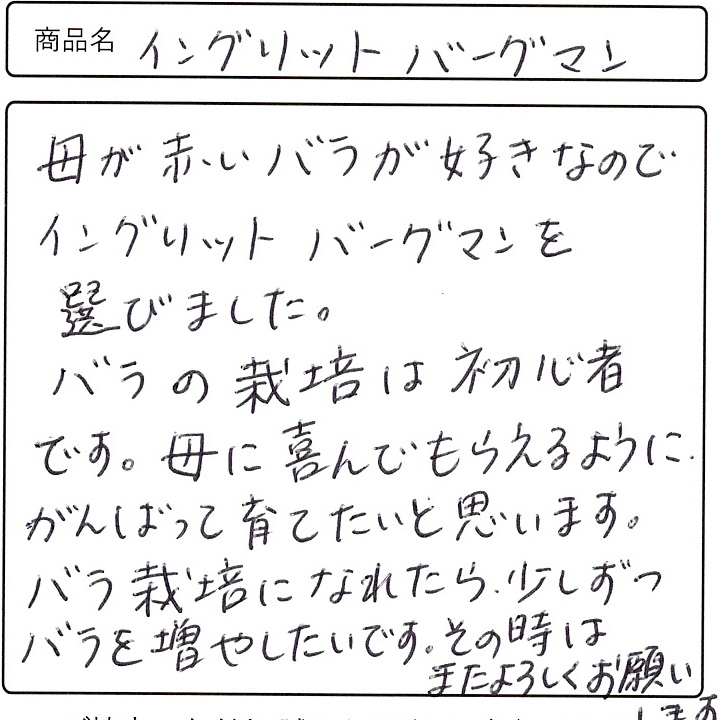 商品名 イングリット バーグマン
母が赤いバラが好きなので
イングリット バーグマンを
選びました。
バラの栽培は初心者
です。母に喜んでもらえるように
がんばって育てたいと思います。
バラ栽培になれたら、少しずつ
バラを増やしたいです。その時は
またよろしくお願い
します